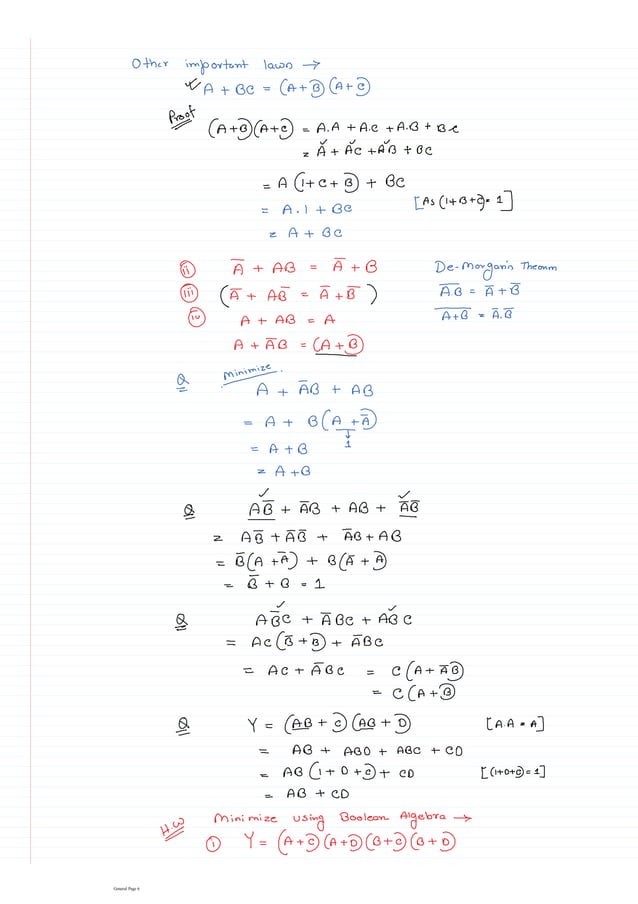 Other important laws →
A + BC = (A+B)(A+C)
Proof
(A+B)(A+C) = A.A + A.C + A.B + BC
= A + AC + AB + BC
= A(1+C+B) + BC
= A.1 + BC [As (1+B+C)= 1]
= A + BC
(ii) A̅ + AB = A̅ + B
(iii) (A̅ + AB̅ = A̅ + B̅)
(iv) A + AB = A
A + A̅B = (A+B)
De-Morgan's Theorem
A̅B̅ = A̅ + B̅
A̅+̅B̅ = A̅.B̅
Q Minimize.
A + A̅B + AB
= A + B(A + A̅)
1
= A + B
= A + B
Q AB̅ + A̅B + AB + A̅B̅
= AB̅ + A̅B̅ + A̅B + AB
= B̅(A + A̅) + B(A̅ + A)
= B̅ + B = 1
Q AB̅C + A̅BC + ABC
= AC(B̅ + B) + A̅BC
= AC + A̅BC = C(A + A̅B)
= C(A + B)
Q Y = (AB + C)(AB + D) [A.A = A]
= AB + ABD + ABC + CD
= AB(1 + D + C) + CD [(1+D+C) = 1]
= AB + CD
H.W Minimize using Boolean Algebra →
(i) Y = (A+C)(A+D)(B+C)(B+D)
General Page 6